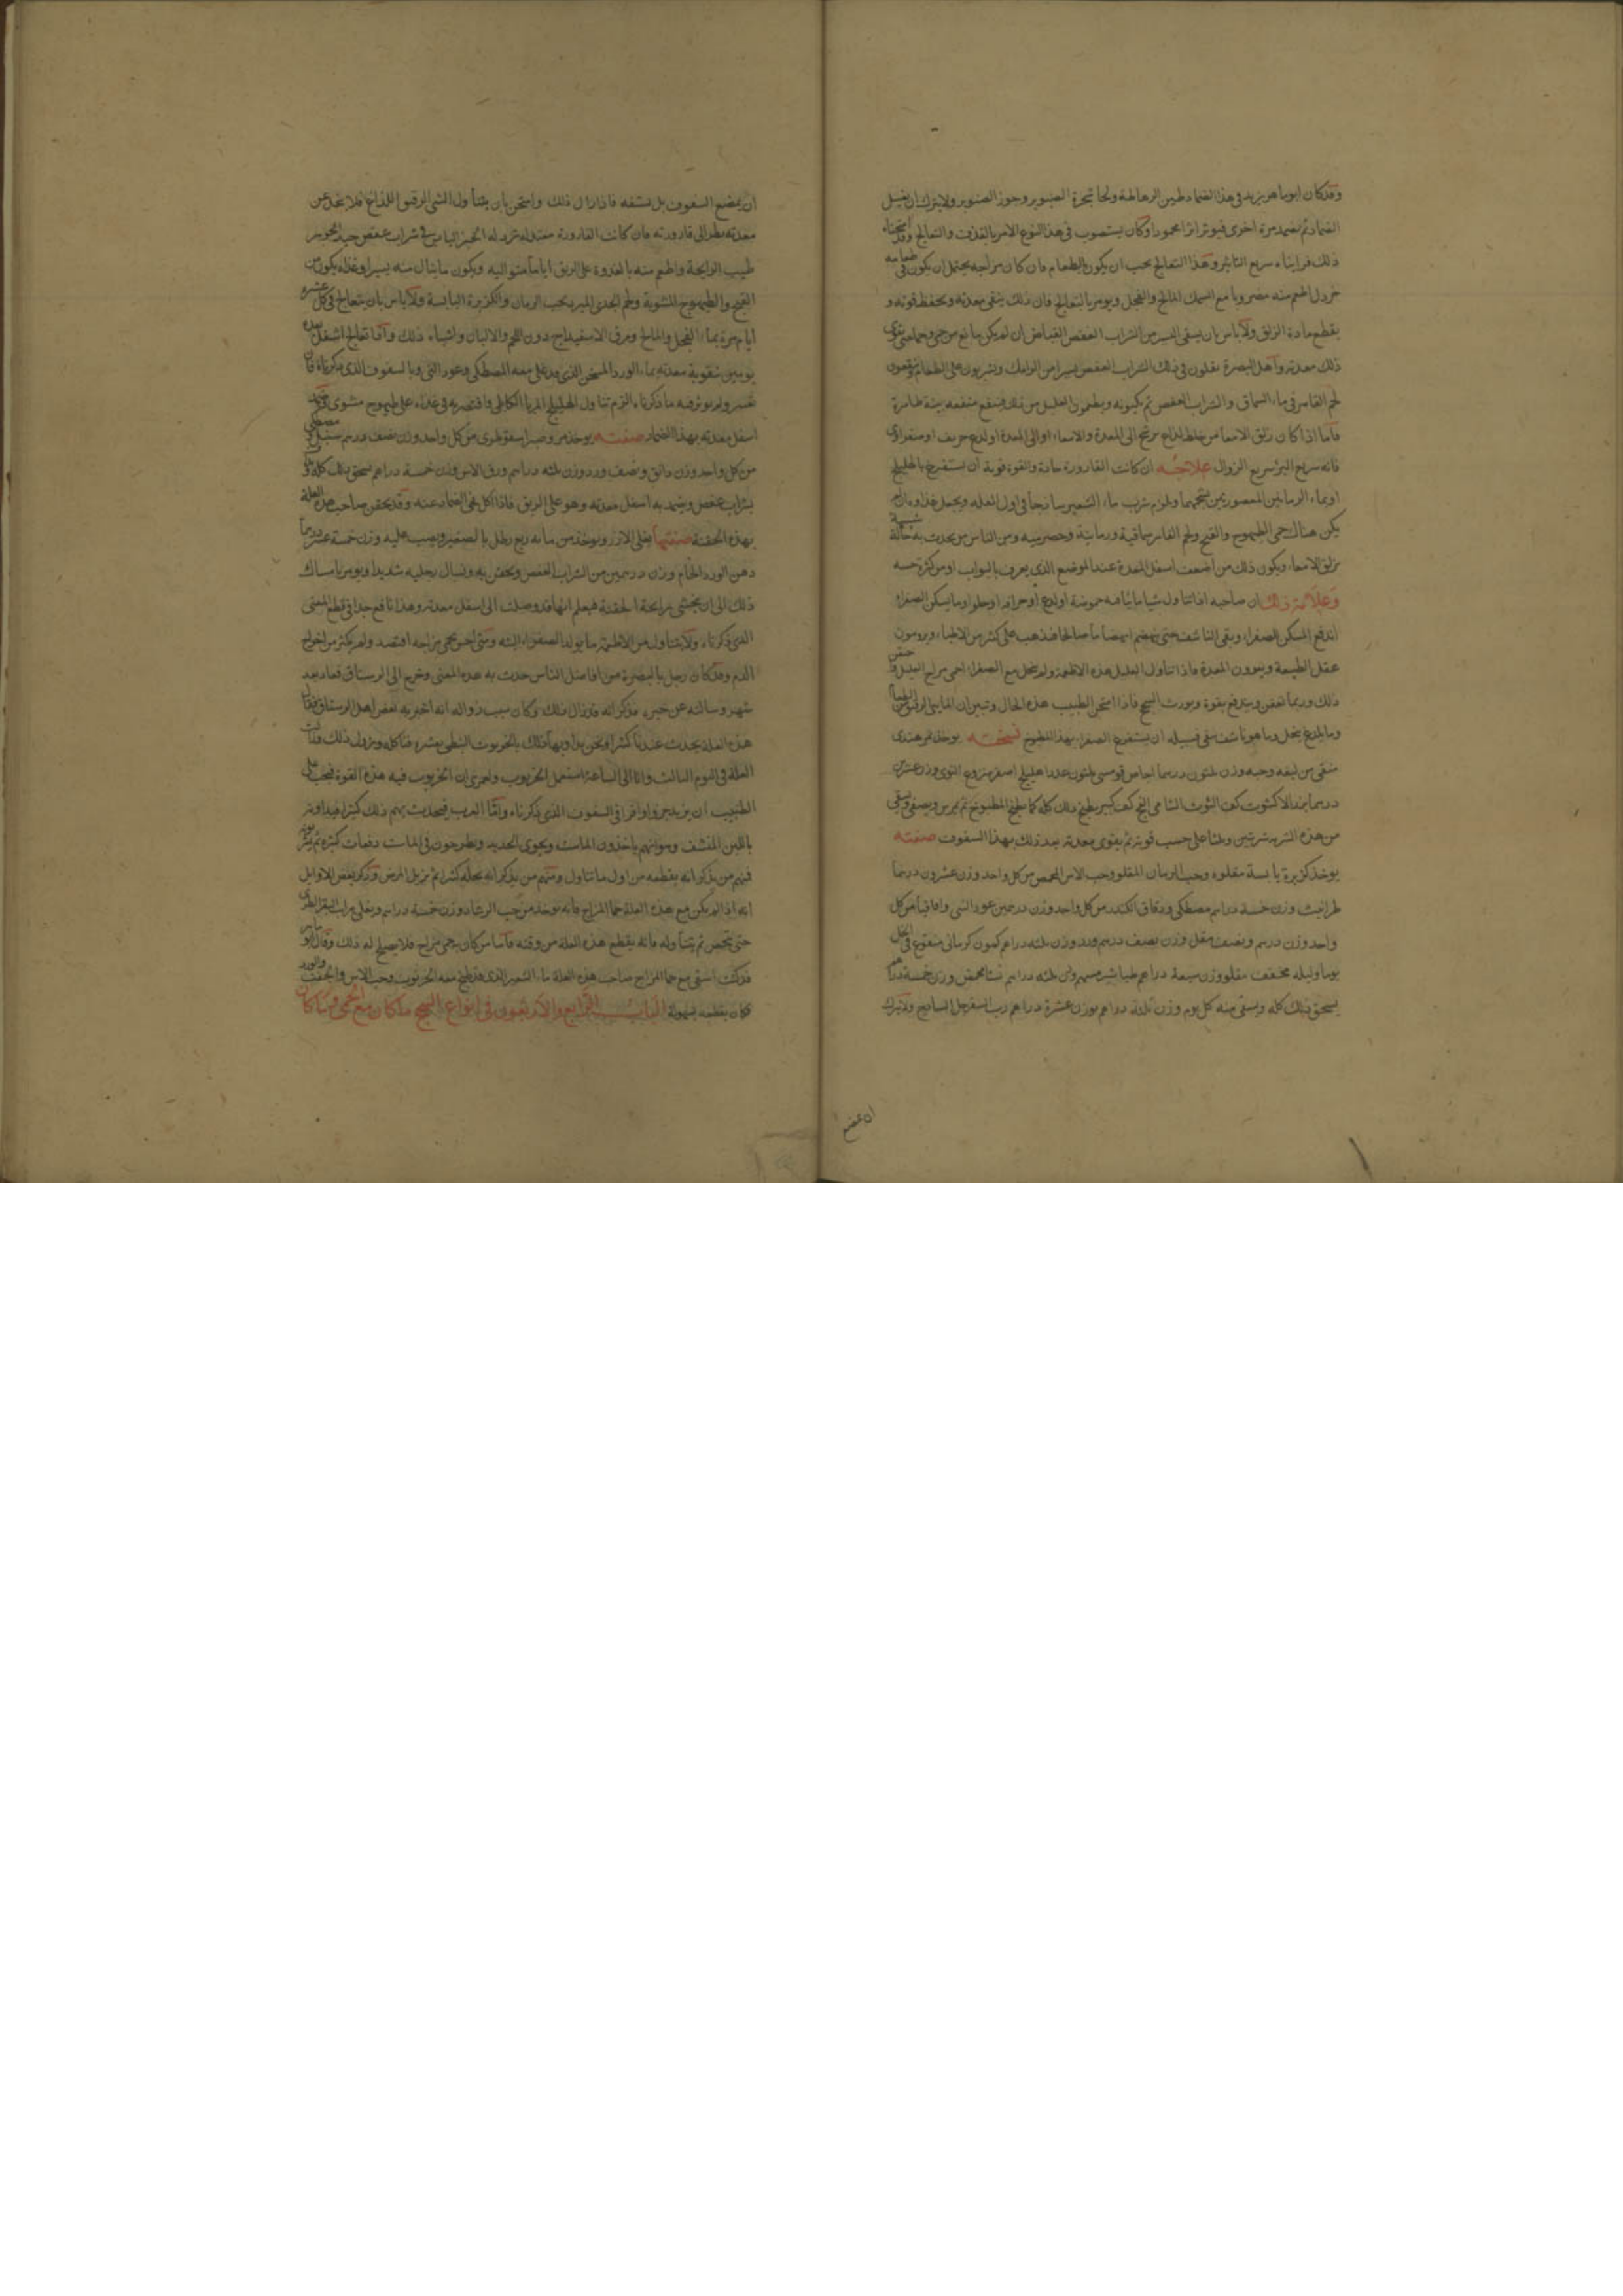 وقد كان ابو ماهر يزيد في هذا الضماد طين الرهاطة ولحا شجرة الصنوبر وجوز الصنوبر ولا يترك ان يغسل
الضماد ثم يضمد مرة اخرى فيوثر اثرا محمودا وكان يستصوب في هذا النوع الامر بالقذف والتعالج وقد امتحناه
ذلك فرايناه سريع التاثير وهذا التعالج يجب ان يكون بالطعام فان كان مزاجه يحتمل ان يكون في طعامه
خردل اطعم منه مضروبا مع السمك المالح والفجل ويومر بالتعالج فان ذلك ينقي معدته ويحفظ قوته و
يقطع مادة الزلق ولا باس بان يسقى اليسير من الشراب العفص القباض ان لم يكن مانع من حمى
ذلك معدته واهل البصرة يقلون في ذلك الشراب العفص يسيرا من الرامك ويشربون على الطعام
لحم القنابر في ماء السماق والشراب العفص ثم يكببونه ويطعمون العليل من ذلك فينتفع منفعة بينة ظاهرة
فاما اذا كان زلق الامعا من خلط لذاع يرشح الى المعدة والامعاء او الى المعدة او لدغ حريف او صفراوي
فانه سريع البرؤ سريع الزوال علاجه ان كانت القارورة حادة والقوة قوية ان يستفرغ بالهليلج
او بماء الرمانين المعصورين بشحمهما ويلزم شرب ماء الشعير ساذجا في اول العلة ويجعل غذاوه ان لم
يكن هناك حمى الطيهوج والقبج ولحم القنابر سماقية ورمانية وحصرمية ومن الناس من يحدث به حالة شبيهة
بزلق الامعاء ويكون ذلك من ضعف اسفل المعدة عند الموضع الذي يعرف بالبواب او من كثرة حسه
وعلامة ذلك ان صاحبه اذا تناول شيا ما يافه حموضة او لدغ او حرافة او حلوا وما يسكن الصفراء
اندفع المسكن للصفراء وبقي الناشف حتى ينهضم انهضاما صالحا فذهب على كثير من الاطباء ويرومون
عقل الطبيعة ويقوون المعدة فاذا تناول العليل هذه الاطعمة ولم ينحل مع الصفراء احمى مزاج العليل
ذلك وربما تعفن ويندفع بقوة ويورث السحج فاذا امتحن الطبيب هذه الحال وتبين ان المايي الرقيق من الطعام
وما يلدغ ينحل وما هو ناشف يبقى فسبيله ان يستفرغ الصفراء بهذا المطبوخ نسخته يوخذ تمر هندي
منقى من ليفه وحبه وزن ثلثون درهما اجاص قومسي ثلثون عددا هليلج اصفر منزوع النوى وزن عشرين
درهما بزر الاكشوث كف التوت الشامي الفج كف كبير يطبخ ذلك كله كما يطبخ المطبوخ ثم يمرس ويصفى ويسقى
من هذه الشربة شربتين وثلثا على حسب قوته ثم يقوى معدته بعد ذلك بهذا السفوف صفته
يوخذ كزبرة يابسة مقلوه وحب الرمان المقلو وحب الاس المحمص من كل واحد وزن عشرون درهما
طراثيث وزن خمسة دراهم مصطكى ودقاق الكندر من كل واحد وزن درهمين عود الني واقاقيا من كل
واحد وزن درهم ونصف مقل وزن نصف درهم ورد وزن ثلثه دراهم كمون كرماني منقوع في الخل
يوما وليله مجفف مقلو وزن سبعة دراهم طباشير وزن ثلثه دراهم نشا محمص وزن خمسة دراهم
يسحق ذلك كله ويسقى منه كل يوم وزن ثلاثة دراهم بوزن عشرة دراهم رب السفرجل الساذج ولا يترك
ان يمضغ
ان يمضغ السفوف بل يستفه فاذا زال ذلك وامتحن بان يتناول الشي الرقيق اللذاع فلا ينحل عن
معدته نظر الى قارورته فان كانت القارورة معتدله ثرد له الخبز اليابس في شراب عفص جيد الجوهر
طيب الرايحة واطعم منه بالغدوة على الريق اياما متواليه ويكون ما ينال منه يسيرا وغذاه يكون من
القبج والطيهوج المشوية ولحم الجدي المبزر بحب الرمان والكزبرة اليابسة ولا باس بان يتعالج في كل عشرة
ايام مرة بماء الفجل والملح ومرق الاسفيدباج دون اللحم والالبان واشباه ذلك واذا تعالج اشتغل بعده
يومين بتقوية معدته بماء الورد المسخن الذي قد غلي معه المصطكى وعود الني وبالسفوف الذي ذكرناه فان
عسر ولم يوثر فيه ما ذكرناه الزم تناول الهليلج المربا الكابلي واقتصر به في غذاه على طيهوج مشوي
اسفل معدته بهذا الضماد صفته يوخذ مر وصبر اسقوطري من كل واحد وزن نصف درهم سنبل ومصطكى
من كل واحد وزن دانق ونصف ورد وزن ثلثه دراهم ورق الاس وزن خمسة دراهم يسحق ذلك كله
بشراب عفص ويضمد به اسفل معدته وهو على الريق فاذا اكل نحي الضماد عنه وقد يحقن صاحب هذه العلة
بهذه الحقنة صفتها يغلى الارز ويوخذ من مائه ربع رطل بالصغير ويصب عليه وزن خمسة عشر درهما
دهن الورد الخام وزن درهمين من الشراب العفص ويحقن به وتشال رجليه شديدا ويومر بامساك
ذلك الى ان يتجشى برايحة الحقنة فيعلم انها قد وصلت الى اسفل معدته وهذا نافع جدا في قطع المعنى
الذي ذكرناه ولا يتناول من الاطعمة ما يولد الصفراء البته ومتى احس بحمى مزاجه افتصد ولم يكثر من اخراج
الدم وقد كان رجل بالبصرة من افاضل الناس حدث به هذه المعنى وخرج الى الرستاق فعاد بعد
شهر وسالته عن خبره فذكر انه قد زال ذلك وكان سبب زواله انه اخبر به بعض اهل الرستاق فقال
هذه العلة يحدث عندنا كثيرا ونحن نداويها بذلك بالخرنوب النبطي بعشره فتاكله ويزول ذلك
العلة في اليوم الثالث وانا الى الساعة استعمل الخرنوب ولعمري ان الخرنوب فيه هذه القوة فيجب على
الطبيب ان يزيد جزوا وافرا في السفوف الذي ذكرناه واما العرب فيحدث بهم ذلك كثيرا فيداوونه
باللبن المنشف وحواتهم ياخذون الماست ويحمون الحديد ويطرحون في الماست دفعات كثيرة ثم
فمنهم من يذكر انه يقطعه من اول ما تناول ومنهم من يذكر انه يحله كثيرا ثم يزيل المرض وذكر بعض الاوايل
انه اذا لم يكن مع هذه العلة حما المزاج فانه يوخذ من حب الرشاد وزن خمسة دراهم ويغلى بلبن البقر الطري
حتى يخثر ثم يتناوله فانه يقطع هذه العلة من وقته فاما من كان بحمى مزاج فلا يصلح له ذلك وقال ابو ماهر
قد كنت اسقي مع حما المزاج صاحب هذه العلة ماء الشعير الذي قد طبخ معه الخرنوب وحب الاس والجفت والورد
فكان يقطعه بسهولة الباب الرابع والاربعون في انواع السحج ما كان مع الحمى وما كان